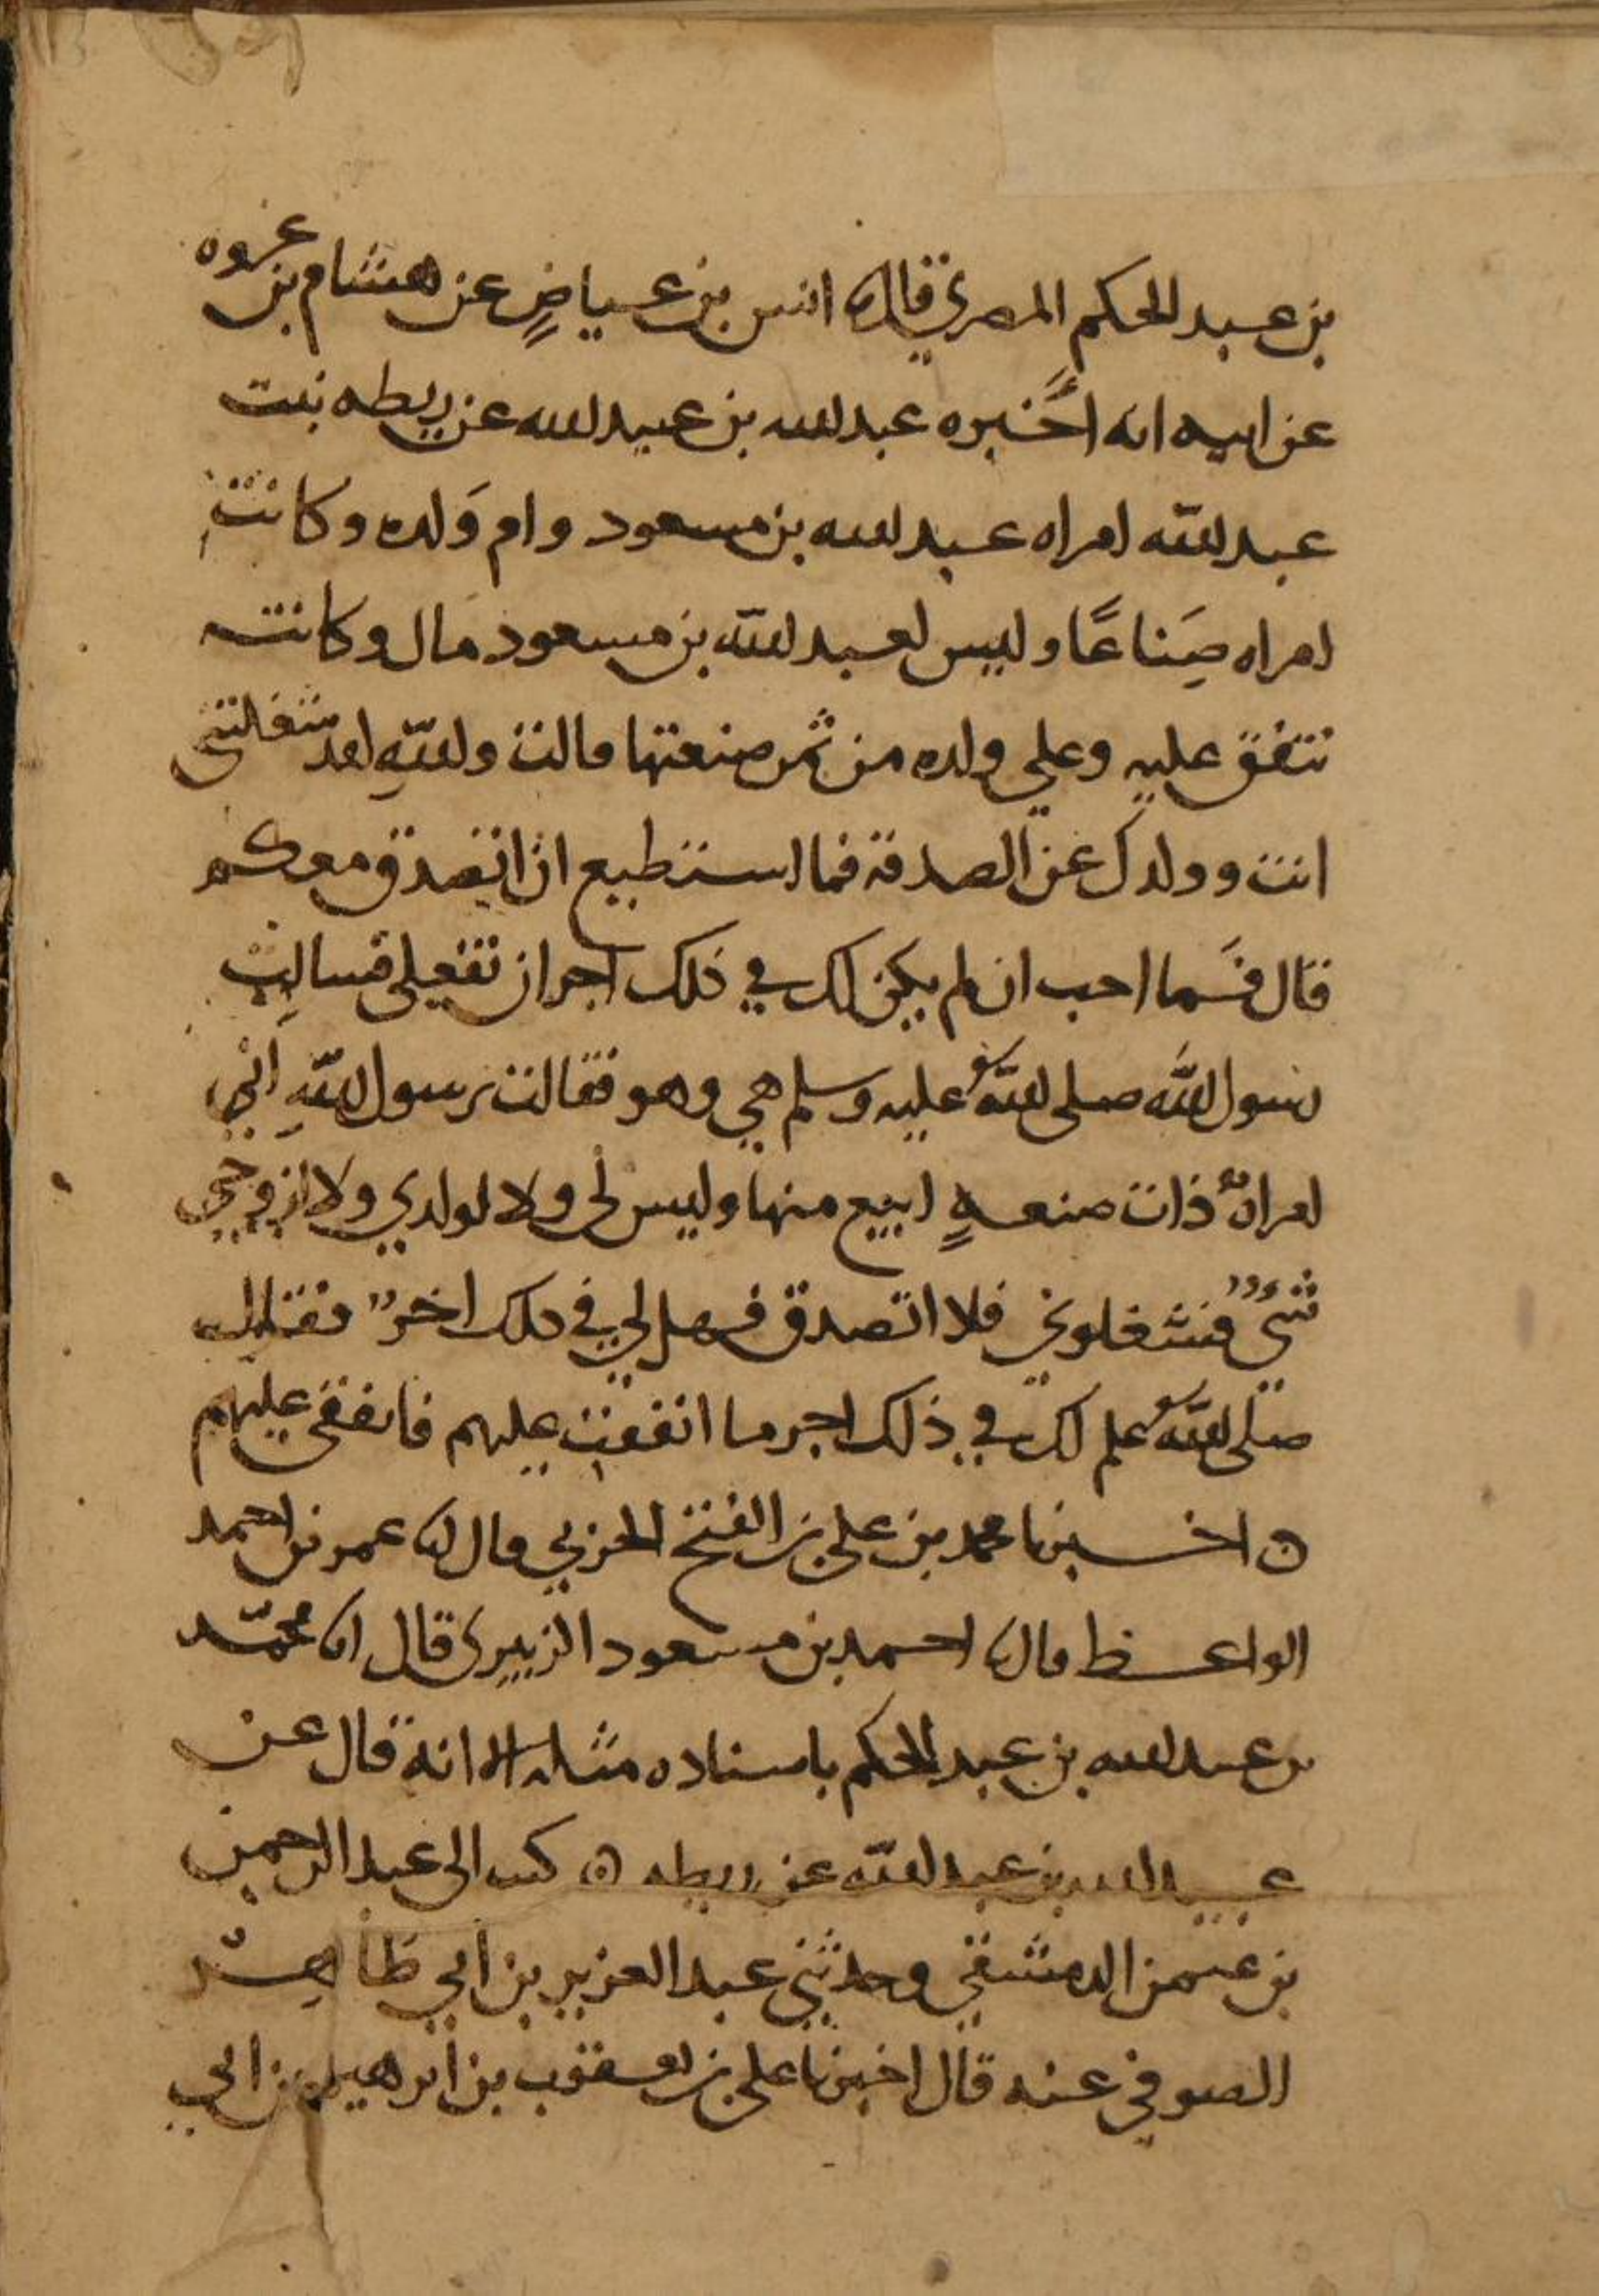 بن عبد الحكم المصري قال نا انس بن عياضٍ عن هشام بن عروه
عن ابيه انه أخبره عبد الله بن عبيد الله عن ريطه بنت
عبد الله امراه عبد الله بن مسعود وام وَلده وكانت
امراه صِناعًا وليس لعبد الله بن مسعود مال وكانت
تنفق عليه وعلي ولده من ثمر صنعتها قالت واللهِ لقد شغلتني
انت وولدك عن الصدقة فما استطيع ان اتصدق معكم
قال فَما احب ان لم يكن لك في ذلك اجر ان تفعلي فسالت
رسول الله صلى الله عليه وسلم هي وهو فقالت يرسول اللهِ اني
امراةٌ ذات صنعةٍ ابيع منها وليس لي ولا لولدي ولا لزوجي
شيءٌ فشغلوني فلا اتصدق فهل لي في ذلك اجرٌ فقال
صلى الله علم لك في ذلك اجر ما انفقت عليهم فانفقي عليهم
ه اخبرنا محمد بن علي بن الفتح الحربي قال نا عمر بن احمد
الواعظ قال نا احمد بن مسعود الزبيري قال نا محمّد
بن عبد الله بن عبد الحكم باسناده مثله الا انه قال عن
عبيد الله بن عبد الله عن ريطه ه كتب الى عبد الرحمن
بن عثمن الدمشقي وحدثني عبد العزيز بن ابي طاهر
الصوفي عنه قال اخبرنا علي بن يعقوب بن ابرهيم بن ابي